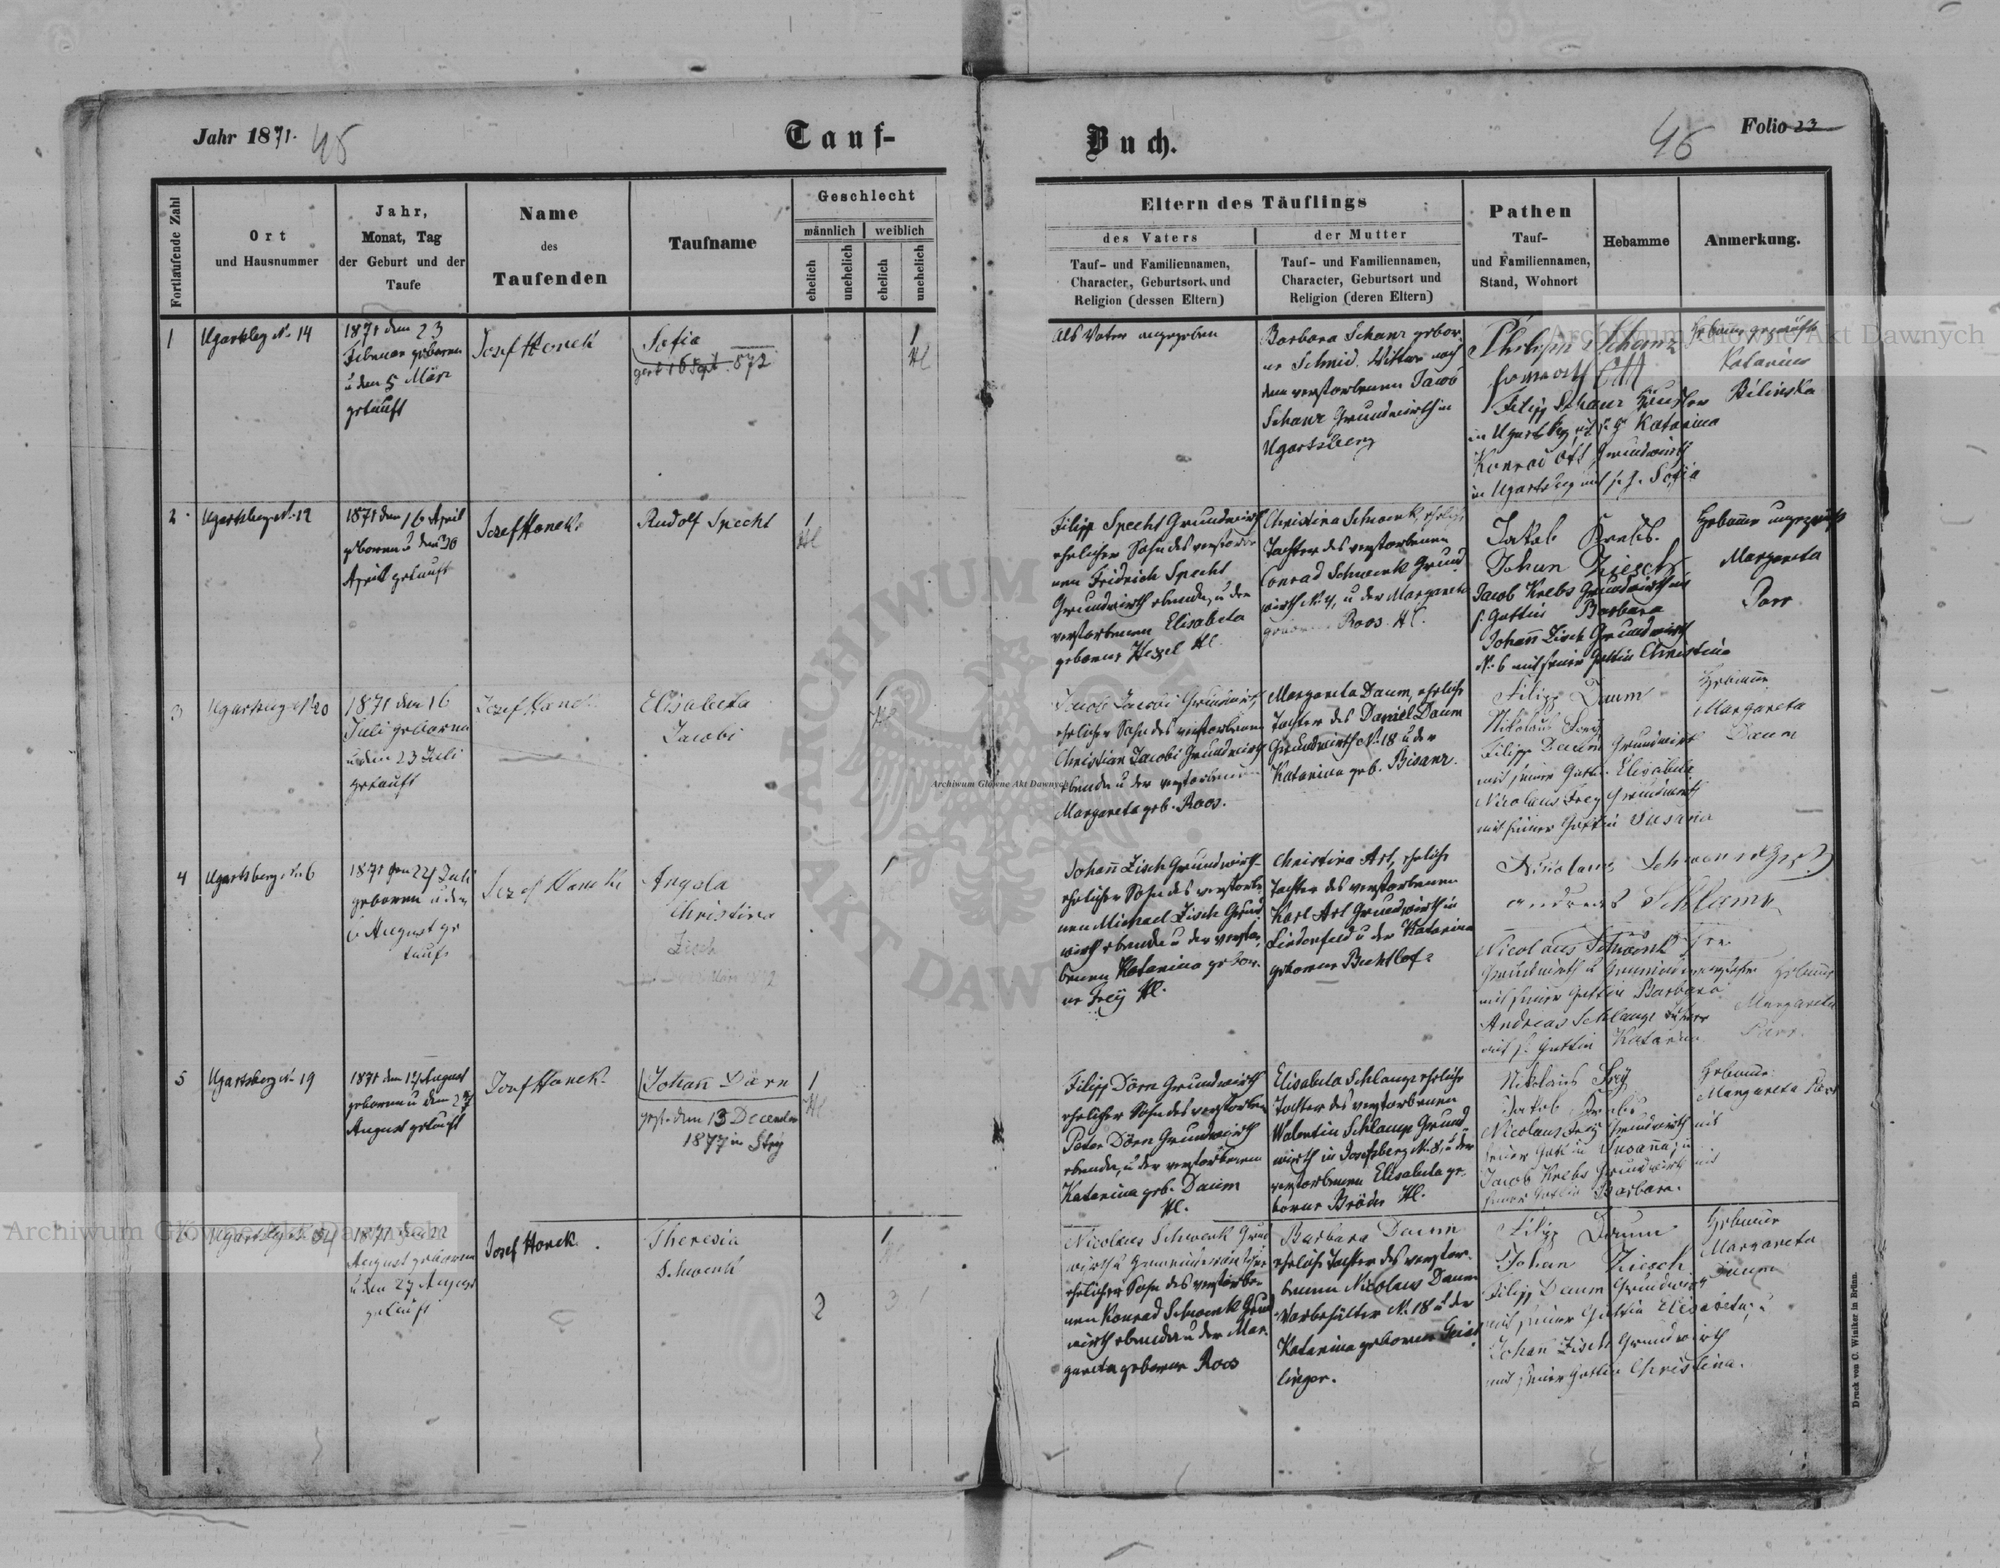 Jahr 1871.
45
Tauf-
Buch.
46
Folio 23
Fortlaufende Zahl
Ort
und Hausnummer
Jahr,
Monat, Tag
der Geburt und der
Taufe
Name
des
Taufenden
Taufname
Geschlecht
männlich
weiblich
ehelich
unehelich
ehelich
unehelich
Eltern des Täuflings
des Vaters
Tauf- und Familiennamen,
Character, Geburtsort und
Religion (dessen Eltern)
der Mutter
Tauf- und Familiennamen,
Character, Geburtsort und
Religion (deren Eltern)
Pathen
Tauf-
und Familiennamen,
Stand, Wohnort
Hebamme
Anmerkung.
1
Ugartsberg N. 14
1871 den 23
Februar geboren
u den 5 März
getauft
Josef Hanek
Sofia
gest 16 Sept. 872
1
Hl
Als Vater angegeben
Barbara Schanz gebor
ne Schmid, Wittwe nach
dem verstorbenen Jacob
Schanz Grundwirth in
Ugartsberg
Philipp Schanz
Konrad Ott
Filipp Schanz Häusler
in Ugartsberg mit s. g. Katarina
Konrad Ott Grundwirth
in Ugartsberg mit s. g. Sofia
Hebamme geprüfte
Katarina
Bilinska
2
Ugartsberg N. 12
1871 den 16 April
geboren u den 30
April getauft
Josef Hanek
Rudolf Specht
1
Hl
Filipp Specht Grundwirth
ehelicher Sohn des verstorbe
nen Fridrich Specht
Grundwirth ebenda, u der
verstorbenen Elisabeta
geborne Hexel Hl.
Christina Schwenk, eheliche
Tochter des verstorbenen
Conrad Schwenk Grund
wirth N. 4, u der Margareta
geborne Roos. Hl.
Jakob Krebs.
Johan Ziesch
Jacob Krebs Grundwirth mit
s. Gattin Barbara
Johann Zisch Grundwirth
N. 6 mit seiner Gattin Christina
Hebamme ungeprüfte
Margareta
Parr
3
Ugartsberg N. 20
1871 den 16
Juli geboren
u den 23 Juli
getauft
Josef Hanek
Elisabeta
Jacobi
1
Hl
Jacob Jacobi Grundwirt,
ehelicher Sohn des verstorbenen
Christian Jacobi Grundwirth
ebenda u der verstorbenen
Margareta geb. Roos.
Margareta Daum, eheliche
Tochter des Daniel Daum
Grundwirth N. 18 u der
Katarina geb. Bisanz.
Filipp Daum
Nikolaus Frey
Filipp Daum Grundwirt
mit seiner Gattin Elisabeta
Nicolaus Frey Grundwirth
mit seiner Gattin Susana
Hebamme
Margareta
Daum
4
Ugartsberg N. 6
1871 den 24 Juli
geboren u den
6 August ge
tauft
Josef Hanek
Angela
Christina
Zisch
1
Johann Zisch Grundwirth
ehelicher Sohn des verstorbe
nen Michael Zisch Grund
wirth ebenda u der verstor
benen Katarina gebor
ne Frey Hl.
Christina Art, eheliche
Tochter des verstorbenen
Karl Art Grundwirth in
Lindenfeld u der Katarina
geborne Buchlof
Nikolaus Schwenk
Andreas Schlamp
Nicolaus Schwenk
Grundwirth u Gemeindevorsteher
mit seiner Gattin Barbara
Andreas Schlamp
mit s. Gattin Katarina
Hebamme
Margareta
Parr.
5
Ugartsberg N. 19
1871 den 12 August
geboren u den 27
August getauft
Josef Hanek
Johann Dörn
gest. den 13 December
1877 in Stry
1
Hl
Filipp Dörn Grundwirth
ehelicher Sohn des verstorben
Peter Dörn Grundwirth
ebenda, u der verstorbenen
Katarina geb. Daum
Hl.
Elisabeta Schlamp eheliche
Tochter des verstorbenen
Walentin Schlamp Grund
wirth in Josefsberg N. 8, u der
verstorbenen Elisabeta ge
borne Bröder Hl.
Nikolaus Frey
Jakob Krebs
Nicolaus Frey Grundwirth mit
seiner Gattin Susanna, u
Jacob Krebs Grundwirth mit
seiner Gattin Barbara.
Hebamme
Margareta Parr
6
Ugartsberg N. 34
1871 den 22
August geboren
u den 27 August
getauft
Josef Hanek
Theresia
Schwenk
1
Hl
2
3
1
Nicolaus Schwenk Grund
wirth u Gemeindevorsteher
ehelicher Sohn des verstorbe
nen Konrad Schwenk Grund
wirth ebenda u der Mar
gareta geborne Roos
Barbara Daum
eheliche Tochter des verstor
benen Nicolaus Daum
N. 18 u der
Katarina geborne Geist
linger.
Filipp Daum
Johan Ziesch
Filipp Daum Grundwirt
mit seiner Gattin Elisabeta, u
Johan Zisch Grundwirth
mit seiner Gattin Christina.
Hebamme
Margareta
Daum
Druck von C. Winiker in Brünn.
Archiwum Główne Akt Dawnych
Archiwum Główne Akt Dawnych
Archiwum Główne Akt Dawnych
ARCHIWUM
AKT DAWNYCH